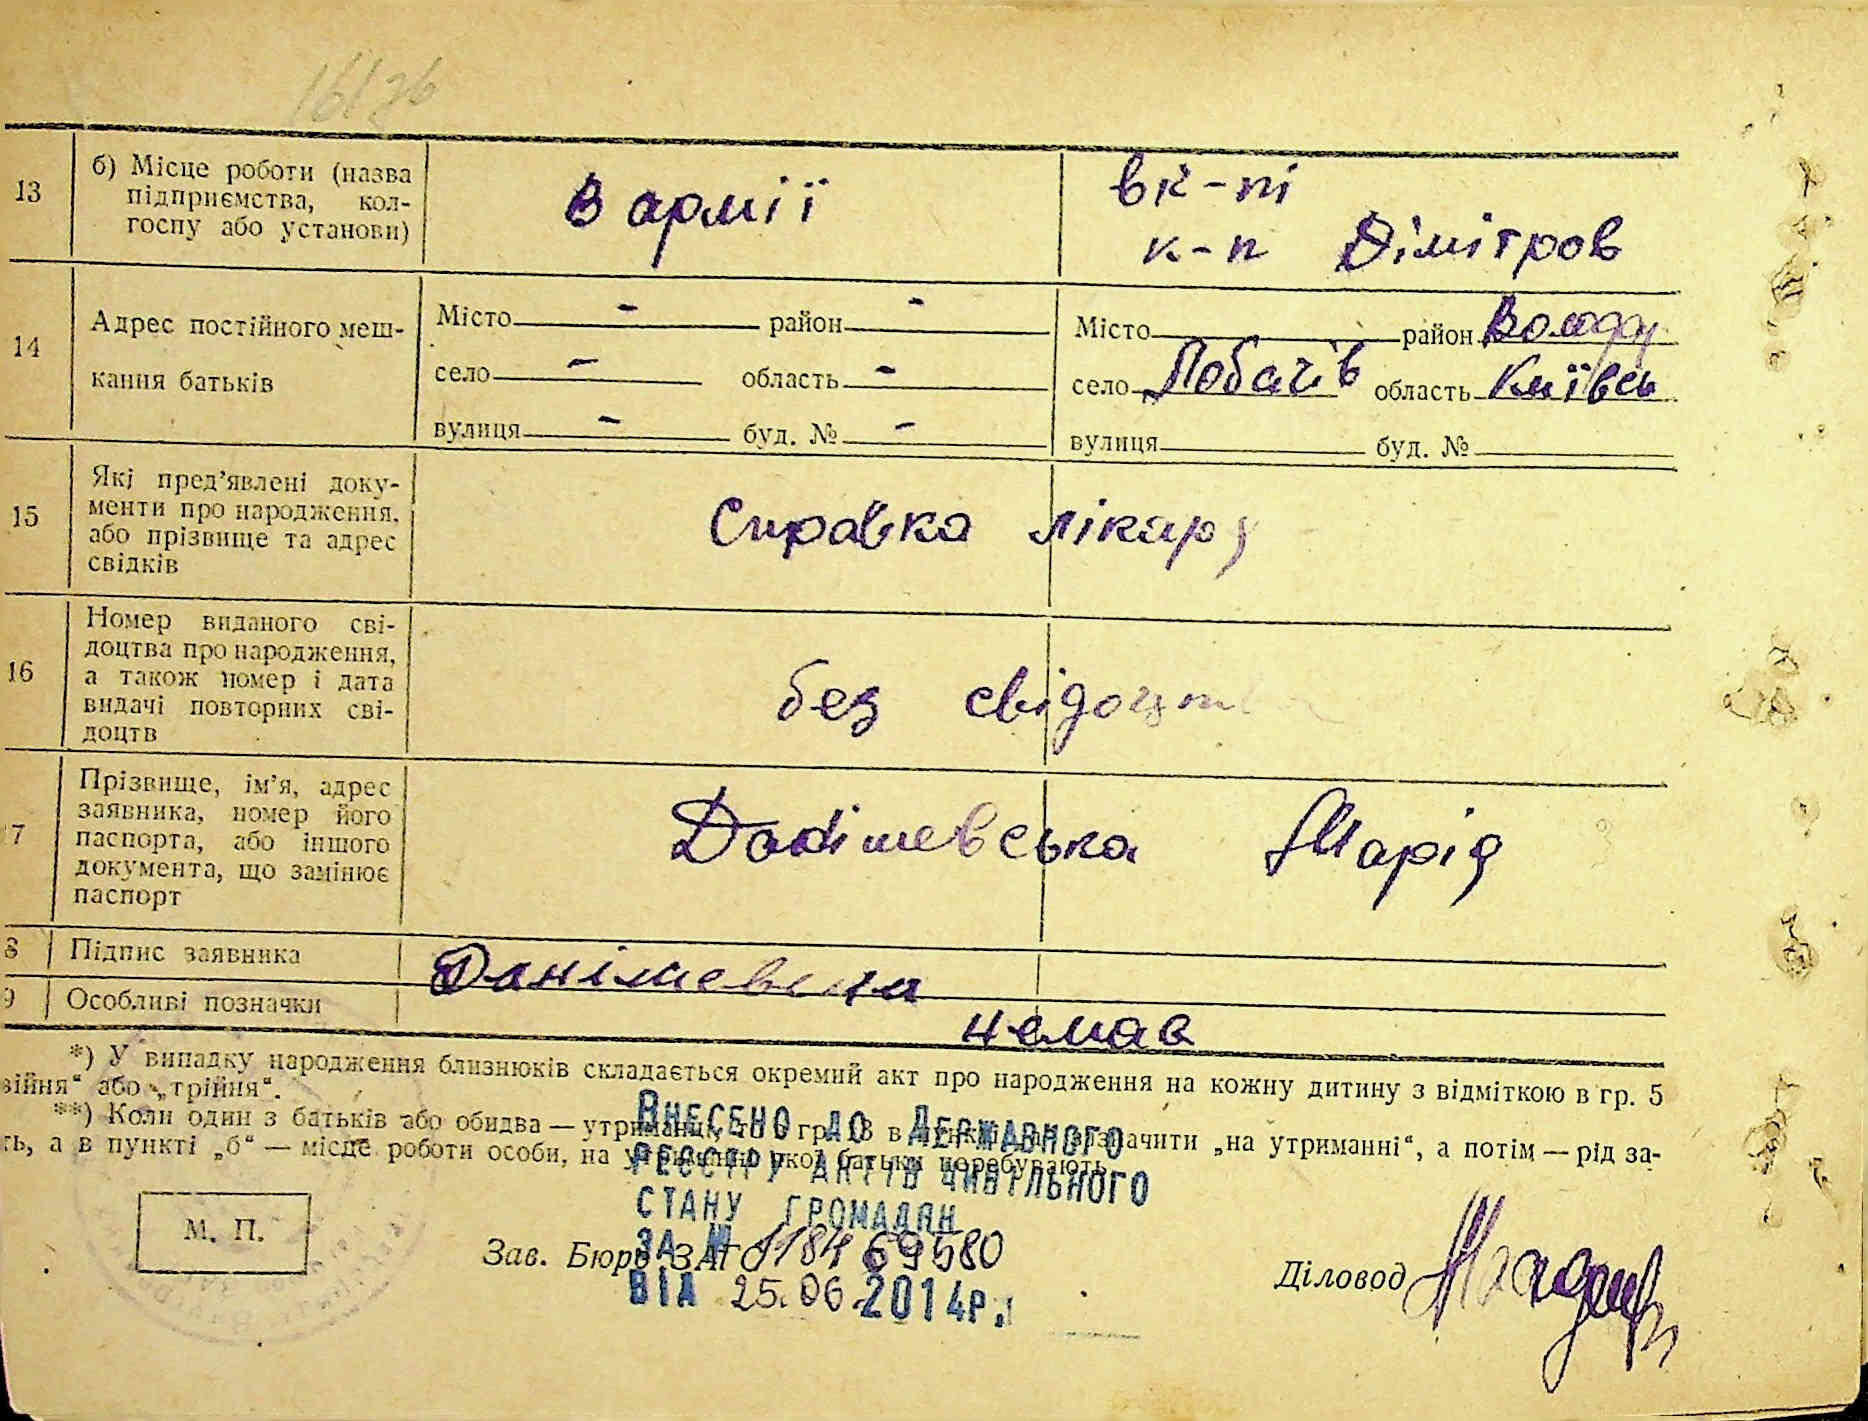 13
б) Місце роботи (назва
підприємства, кол-
госпу або установи)
в армії
в к-пі
к-п Дімітров
14
Адрес постійного меш-
кання батьків
Місто - район -
село - область -
вулиця - буд. № -
Місто район Володар
село Лобачів область Київсь
вулиця буд. №
15
Які пред’явлені доку-
менти про народження,
або прізвище та адрес
свідків
Справка лікаря
16
Номер виданого сві-
доцтва про народження,
а також номер і дата
видачі повторних сві-
доцтв
без свідоцтва
7
Прізвище, ім’я, адрес
заявника, номер його
паспорта, або іншого
документа, що замінює
паспорт
Марія
8
Підпис заявника
9
Особливі позначки
немає
*) У випадку народження близнюків складається окремий акт про народження на кожну дитину з відміткою в гр. 5
війня“ або „трійня“.
**) Коли один з батьків або обидва — утриманці, то в гр. 13 в пункті зазначити „на утриманні“, а потім — рід за-
ть, а в пункті „б“ — місце роботи особи, на утриманні якої батьки перебувають
ВНЕСЕНО ДО ДЕРЖАВНОГО
РЕЄСТРУ АКТІВ ЦИВІЛЬНОГО
СТАНУ ГРОМАДЯН
ЗА № 118469580
ВІД 25.06.2014р.
М. П.
Зав. Бюро ЗАГС
Діловод